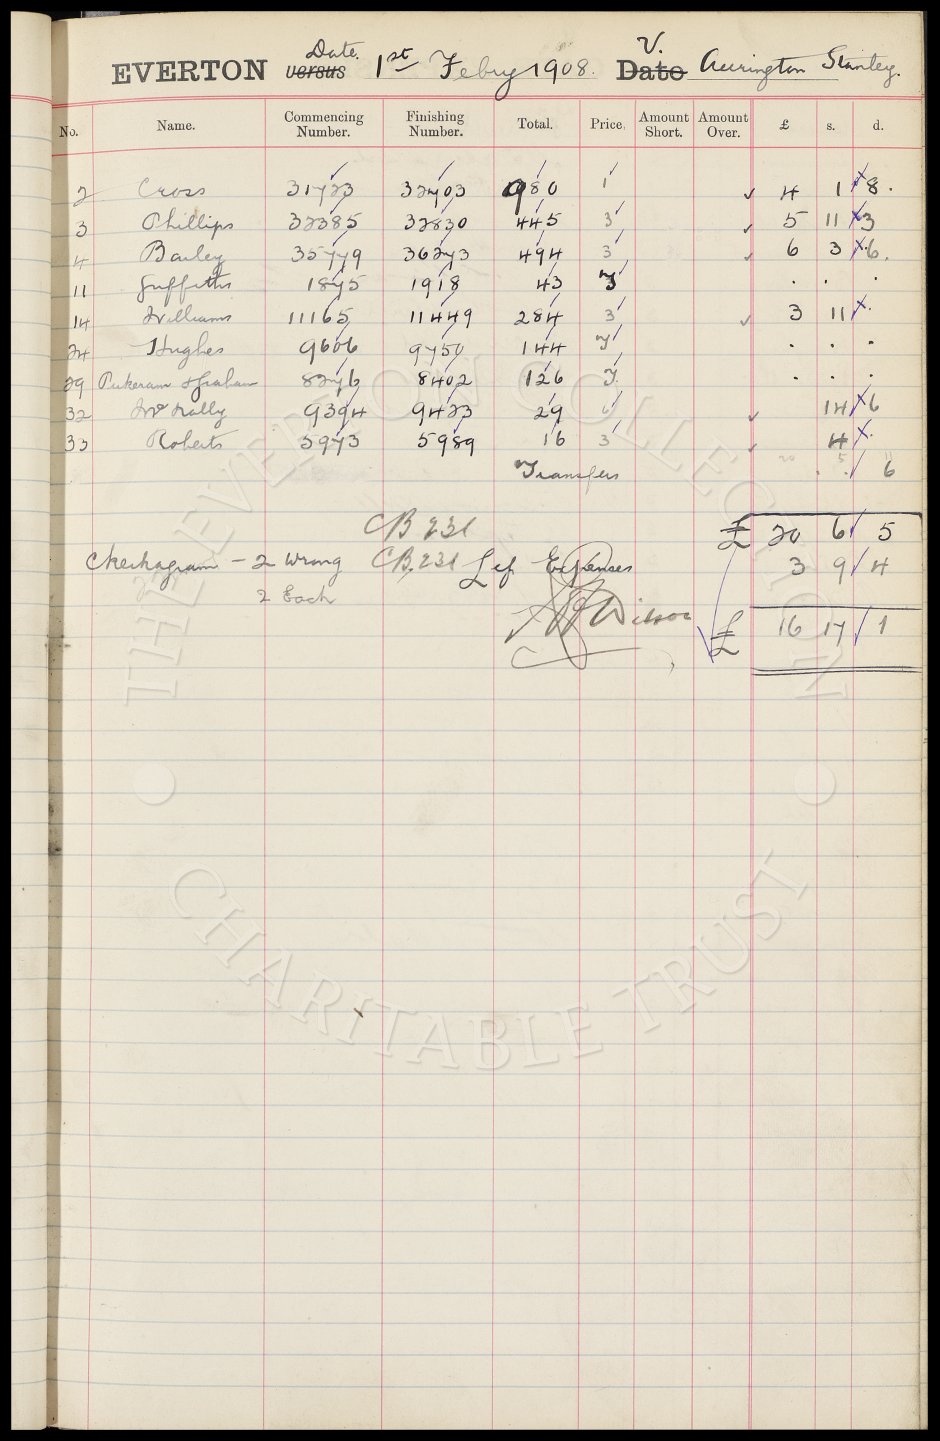 EVERTON versus Date. 1st Febry 1908. Date V. Accrington Stanley.
No. Name. Commencing Number. Finishing Number. Total. Price. Amount Short. Amount Over. £ s. d.
2 Cross 31723 32703 980 1 4 1 8.
3 Phillips 32385 32830 445 3 5 11 3
4 Bailey 35779 36273 494 3 6 3 6.
11 Griffiths 1875 1918 43 T . . .
14 Williams 11165 11449 284 3 3 11 .
24 Hughes 9606 9750 144 T . . .
29 Pickeram & Graham 8276 8402 126 T . . .
32 McNally 9394 9423 29 6 14 6
33 Roberts 5973 5989 16 3 4 .
Transfers . . 6
CB 231 £ 20 6 5
Checkagram - 2 wrong CB. 231 Less Expenses 3 9 4
2 Each
Wilson £ 16 17 1
THE EVERTON COLLECTION • CHARITABLE TRUST •